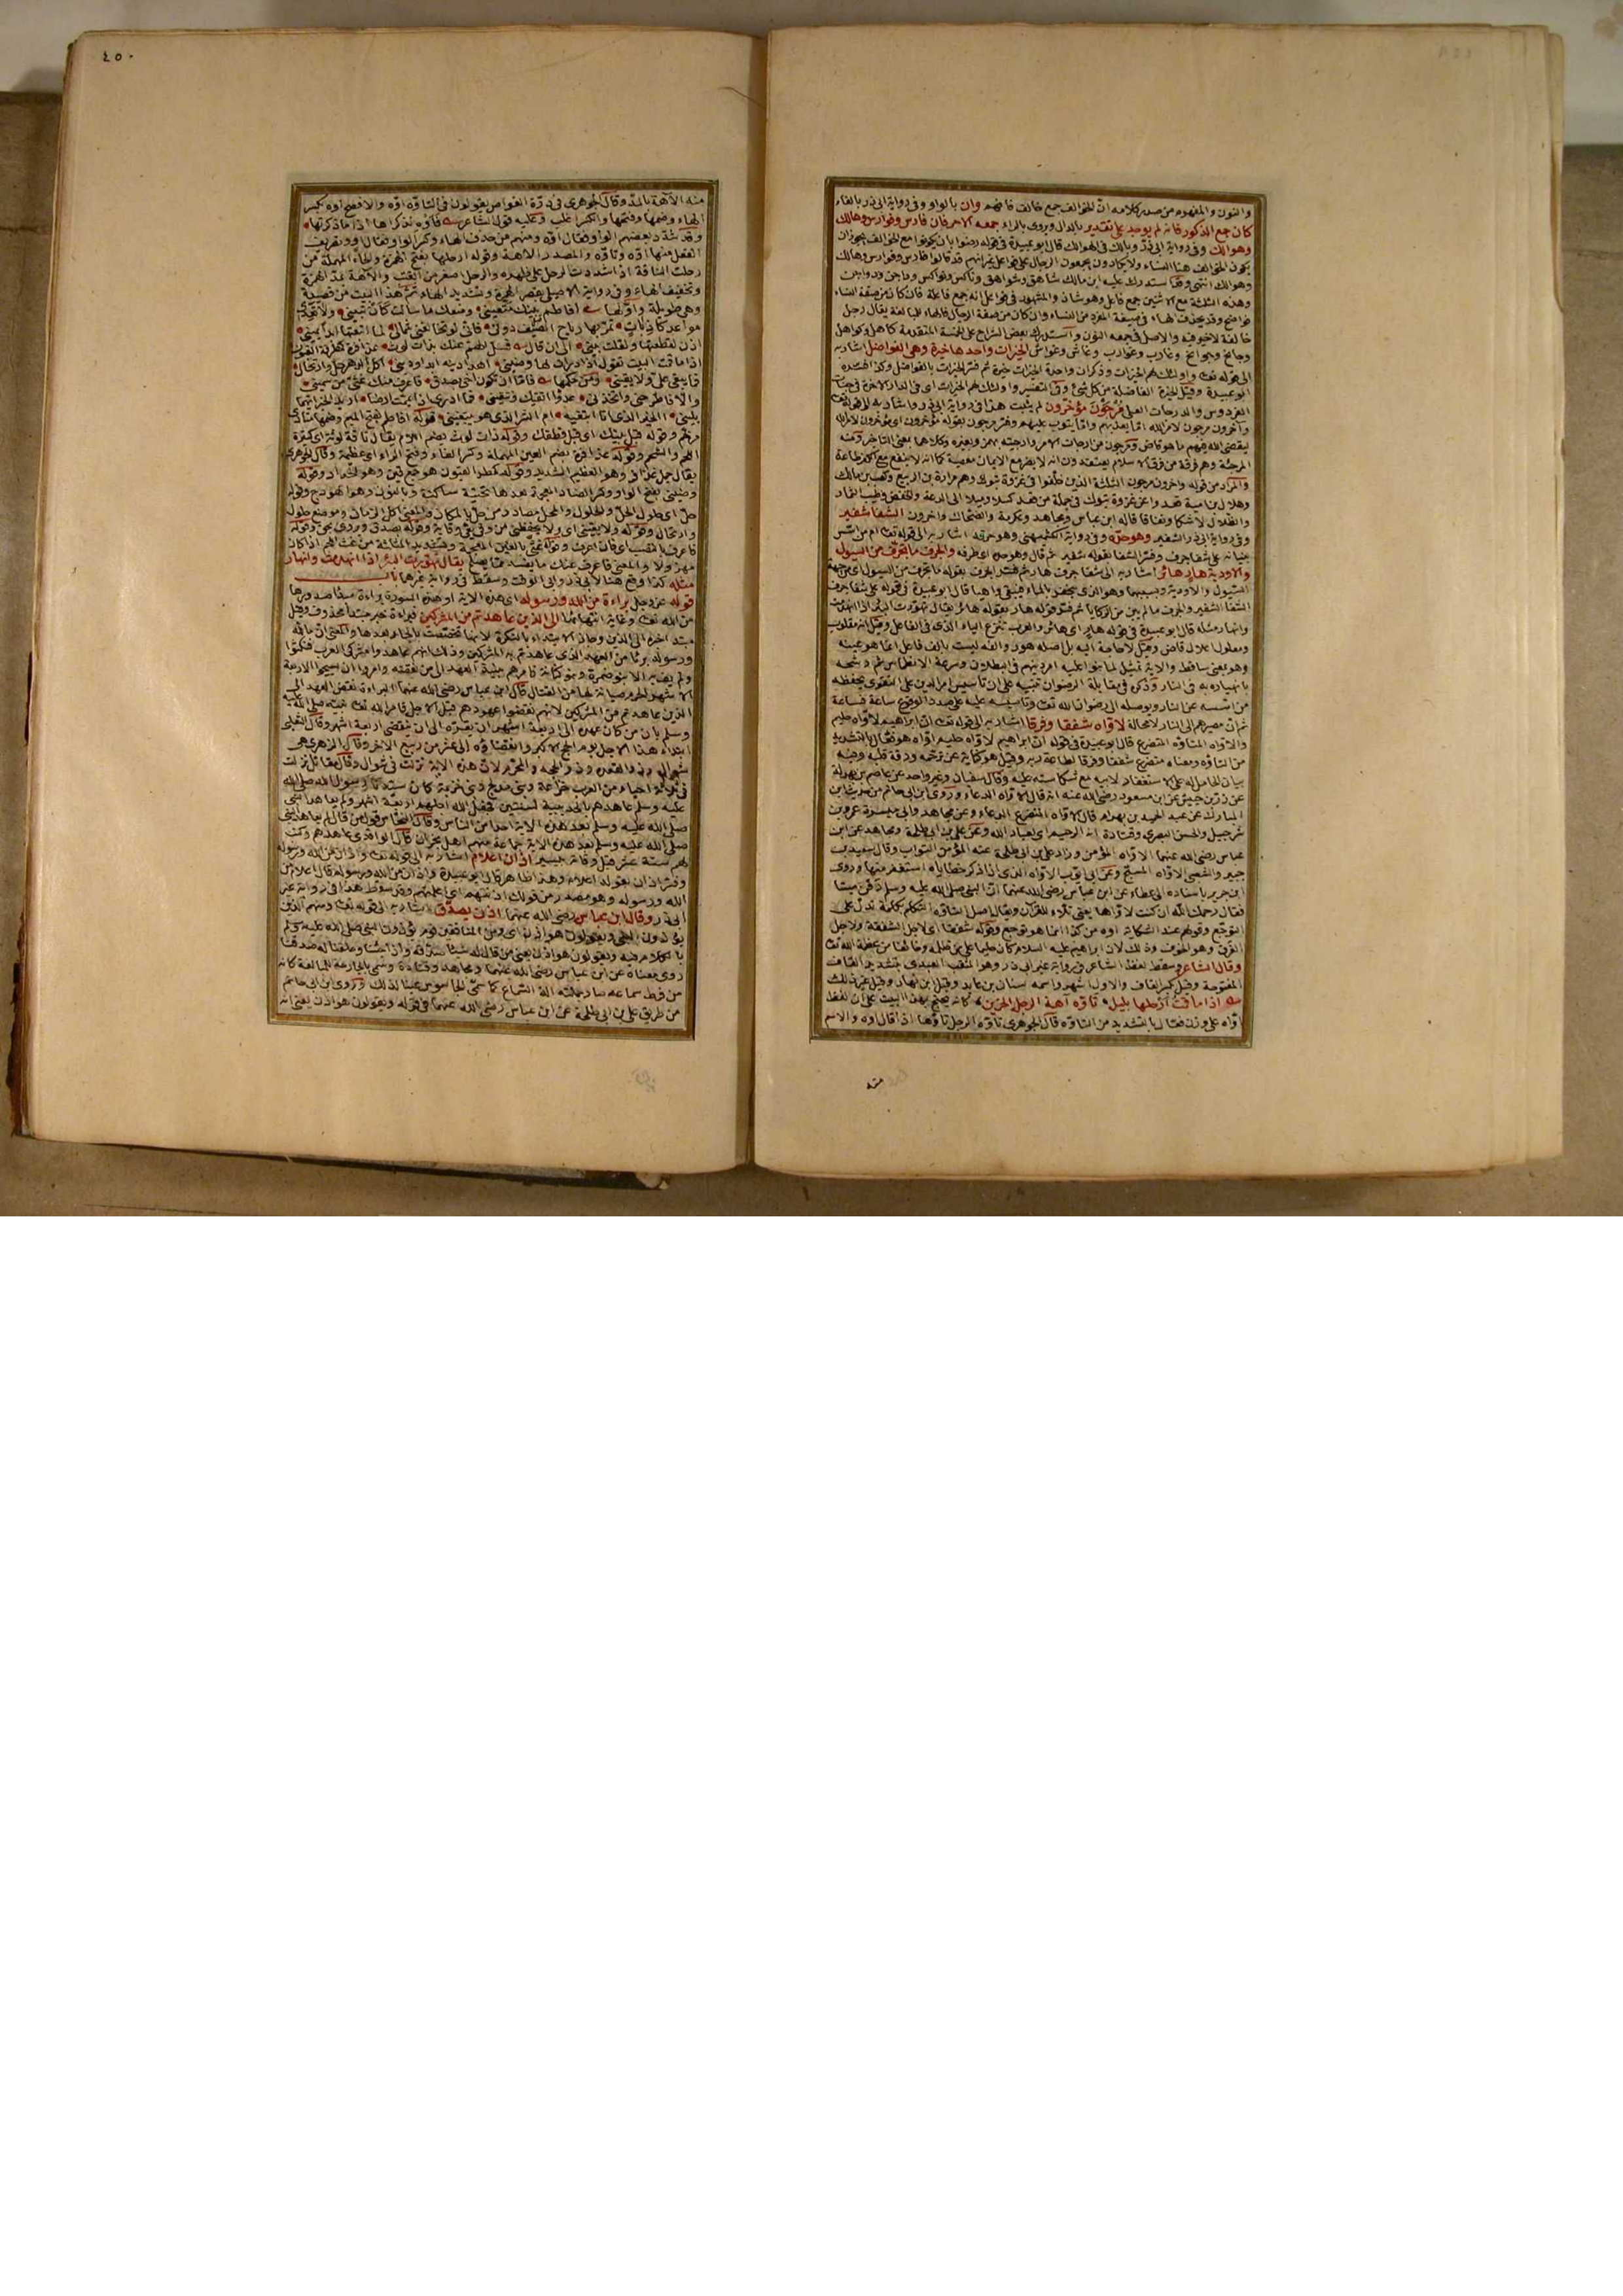 والنون والمفهوم من صدر كلامه ان الخوالف جمع خالف فافهم وان بالواو وفي رواية ابي ذر بالفاء
كان جمع الذكور فانه لم يوجد على تقدير بالدال ويروى بالراء جمعه الا حرفان فارس وفوارس وهالك
وهوالك وفي رواية ابي ذر وهالك في الهوالك قال ابو عبيدة في قوله رضوا بان يكونوا مع الخوالف يجوز ان
يكون الخوالف هنا النساء ولا يكادون يجمعون الرجال على فواعل غير انهم قد قالوا فارس وفوارس وهالك
وهوالك انتهى وقد استدرك عليه ابن مالك شاهق وشواهق وناكس ونواكس وداجن ودواجن
وهذه الثلاثة مع الاثنين جمع فاعل وهو شاذ والمشهور في فواعل انه جمع فاعلة فان كان من صفة النساء
فواضح وقد يحذف الهاء في صفة المفرد من النساء وان كان من صفة الرجال فالهاء للمبالغة يقال رجل
خالفة لا خير فيه والاصل في جمعه النون واستدرك بعض الشراح على الخمسة المتقدمة كاهل وكواهل
وجانح وجوانح وغارب وغوارب وغاش وغواش الخيرات واحدها خيرة وهي الفواضل اشار به
الى قوله تعالى واولئك لهم الخيرات وذكر ان واحدة الخيرات خيرة ثم فسر الخيرات بالفواضل وكذا فسره
ابو عبيدة وقيل الخيرة الفاضلة من كل شيء وفي التفسير واولئك لهم الخيرات اي في الدار الآخرة في جنات
الفردوس والدرجات العلى مرجون مؤخرون لم يثبت هذا في رواية ابي ذر واشار به الى قوله تعالى
وآخرون مرجون لامر الله اما يعذبهم واما يتوب عليهم وفسر مرجون بقوله مؤخرون اي مؤخرون لامر الله
ليقضي الله فيهم ما هو قاض ومرجون من ارجأت الامر وارجيته بهمز وبغيره وكلاهما بمعنى التأخير ومنه
المرجئة وهم فرقة من فرق الاسلام يعتقدون انه لا يضر مع الايمان معصية كما انه لا ينفع مع الكفر طاعة
والمراد من قوله وآخرون مرجون الثلاثة الذين خلفوا في غزوة تبوك وهم مرارة بن الربيع وكعب بن مالك
وهلال بن امية قعدوا عن غزوة تبوك في جملة من قعد كسلا وميلا الى الدعة والخفض وطيب الثمار
والظلال لا شكا ونفاقا قاله ابن عباس ومجاهد وعكرمة والضحاك وآخرون الشفا شفير
وفي رواية ابي ذر الشفير وهو حده وفي رواية الكشميهني وهو حرفه اشار به الى قوله تعالى ام من اسس
بنيانه على شفا جرف وفسر الشفا بقوله شفير ثم قال وهو حده اي طرفه والجرف ما تجرف من السيول
والاودية هار هائر اشار به الى شفا جرف هار ثم فسر الجرف بقوله ما تجرف من السيول
السيول والاودية وبسببهما وهو الذي ينحفر بالماء فيبقى واهيا قال ابو عبيدة في قوله على شفا جرف
الشفا الشفير والجرف ما لم يبن من الركايا ثم فسر قوله هار بقوله هائر يقال تهورت البئر اذا انهدمت
وانهار مثله قال ابو عبيدة في قوله هار اي هائر والعرب تنزع الياء الذي في الفاعل وقيل انه مقلوب
ومعلول اعلال قاض وقيل لا حاجة اليه بل اصله هور والفه ليست بالف فاعل انما هو عينه
وهو بمعنى ساقط والآية تمثيل لما بنوا عليه امر دينهم في البطلان وسرعة الانطماس
بانهياره به في النار وذكر في مقابلة الرضوان تنبيه على ان تأسيس امر الدين على التقوى يحفظه
من اسسه عن النار ويوصله الى رضوان الله تعالى وتأسيسه عليه على صدد الوقوع ساعة فساعة
ثم ان مصيرهم الى النار لا محالة لاواه شفقا وفرقا اشار به الى قوله تعالى ان ابراهيم لاواه حليم
والاواه المتأوه المتضرع قال ابو عبيدة في قوله ان ابراهيم لاواه حليم اواه هو فعال بالتشديد
من التأوه ومعناه متضرع شفقا وفرقا لطاعة ربه وقيل هو كناية عن ترحمه ورقة قلبه وفيه
بيان الحامل له على الاستغفار لابيه مع شكاسته عليه وقال سفيان وغير واحد عن عاصم بن بهدلة
عن زر بن حبيش عن ابن مسعود رضي الله عنه انه قال الاواه الدعاء وروى ابن ابي حاتم من حديث ابن
المبارك عن عبد الحميد بن بهرام قال الاواه المتضرع الدعاء وعن مجاهد وابي ميسرة عمرو بن
شرحبيل والحسن البصري وقتادة انه الرحيم اي بعباد الله وعن علي بن ابي طلحة ومجاهد عن ابن
عباس رضي الله عنهما الاواه المؤمن وزاد علي بن ابي طلحة عنه المؤمن التواب وقال سعيد بن
جبير والشعبي الاواه المسبح وعن ابي ايوب الاواه الذي اذا ذكر خطاياه استغفر منها وروى
ابن جرير باسناده الى عطاء عن ابن عباس رضي الله عنهما ان النبي صلى الله عليه وسلم دفن ميتا
فقال رحمك الله ان كنت لاواها يعني تلاء للقرآن ويقال اصل التأوه التكلم بكلمة تدل على
التوجع وقولهم عند الشكاية اوه من كذا انما هو توجع وقوله شفقا اي لاجل الشفقة ولاجل
الفرق وهو الخوف وذلك لان ابراهيم عليه السلام كان حليما على من ظلمه وخائفا من عظمة الله تعالى
وقال الشاعر وسقط لفظ الشاعر في رواية غير ابي ذر وهو المثقب العبدي بتشديد القاف
المفتوحة وقيل بكسر القاف والاول اشهر واسمه عائذ وقيل ابن نهار وقيل غير ذلك
اذا ما قمت ارحلها بليل تأوه آهة الرجل الحزين كانه يحتج بهذا البيت على ان لفظ
اواه على وزن فعال بالتشديد من التأوه قال الجوهري تأوه الرجل تأوها اذا قال اوه والاسم
منه
٤٥٠
منه الآهة بالمد وقال الجوهري في درة الغواص يقولون في التأوه اوه والافصح اوه بكسر
الهاء وضمها وفتحها والكسر اغلب وعليه قول الشاعر فاوه لذكراها اذا ما ذكرتها
وقد شدد بعضهم الواو فقال اوه ومنهم من حذف الهاء وكسر الواو فقال او وتصريف
الفعل منها اوه وتأوه والمصدر الآهة وقوله ارحلها بفتح الهمزة والحاء المهملة من
رحلت الناقة اذا شددت الرحل على ظهرها والرحل اصغر من القتب والآهة بمد الهمزة
وتخفيف الهاء وفي رواية الاصيلي بقصر الهمزة وتشديد الهاء ثم هذا البيت من قصيدة
وهي طويلة واولها افاطم قبل بينك متعيني ومنعك ما سألت كان تبيني ولا تعدي
مواعد كاذبات تمر بها رياح الصيف دوني فاني لو تخالفني شمالي لما اتبعتها ابدا يميني
اذن لقطعتها ولقلت بيني الى ان قال فسل الهم عنك بذات لوث عذافرة كمطرقة القيون
اذا ما قمت البيت تقول اذا درأت لها وضيني اهذا دينه ابدا وديني اكل الدهر حل وارتحال
فما يبقي علي ولا يقيني ومن حكمها فاما ان تكون اخي بصدق فاعرف منك غثي من سميني
والا فاطرحني واتخذني عدوا اتقيك وتتقيني فما ادري اذا يممت ارضا اريد الخير ايهما
يليني االخير الذي انا ابتغيه ام الشر الذي هو يبتغيني قوله افاطم بفتح الميم وضمها منادى
مرخم وقوله قبل بينك اي قبل قطعك وقوله ذات لوث بضم اللام يقال ناقة لوثة اي كثيرة
اللحم والشحم وقوله عذافرة بضم العين المهملة وكسر الفاء وفتح الراء اي عظيمة وقال الجوهري
يقال جمل عذافر وهو العظيم الشديد وقوله كمطرقة القيون هو جمع قين وهو الحداد وقوله
وضيني بفتح الواو وكسر الضاد المعجمة بعدها تحتية ساكنة وبالنون وهو الهودج وقوله
حل اي طول الحل والحلول والمحل مصادر من حل بالمكان والمعنى اكل الزمان وموضع حلول
وارتحال وقوله ولا يقيني اي ولا يحفظني من وقى يقي وقاية وقوله بصدق ويروى بحق وقوله
فاعرف بالنصب اي فان اعرف وقوله غثي بالغين المعجمة وتشديد المثلثة من غث اللحم اذا كان
مهزولا والمعنى فاعرف منك ما يفسد مما يصلح يقال تهورت البئر اذا انهدمت وانهار
مثله كذا وقع هنا لابي ذر وابي الوقت وسقط في رواية غيرهما باب
قوله عز وجل براءة من الله ورسوله اي هذه الآية او هذه السورة براءة مبتدأ صدورها
من الله تعالى وغاية انتهائها الى الذين عاهدتم من المشركين فبراءة خبر مبتدأ محذوف وقيل
مبتدأ خبره الى الذين وجاز الابتداء بالنكرة لانها تخصصت بالجار بعدها والمعنى ان الله
ورسوله برئا من العهد الذي عاهدتم به المشركين وذلك انهم عاهدوا مشركي العرب فنكثوا
ولم يف به الا بنو ضمرة وبنو كنانة فامرهم بنبذ العهد الى من نقضه وامروا ان يسيحوا الاربعة
الاشهر الحرم صيانة لها من القتال قال ابن عباس رضي الله عنهما البراءة نقض العهد الى
الذين عاهدتم من المشركين لانهم نقضوا عهودهم قبل الاجل فامر الله تعالى نبيه صلى الله عليه
وسلم بان من كان عهده الى اربعة اشهر ان يقره الى ان تنقضي اربعة اشهر وقال الثعلبي
ابتداء هذا الاجل يوم الحج الاكبر وانقضاؤه الى عشر من ربيع الآخر وقال الزهري هي
شوال وذو القعدة وذو الحجة والمحرم لان هذه الآية نزلت في شوال وقال مقاتل نزلت
في ثلاثة احياء من العرب خزاعة وبني مدلج وبني خزيمة كان رسول الله صلى الله
عليه وسلم عاهدهم بالحديبية لسنتين فجعل الله اجلهم اربعة اشهر ولم يعاهد النبي
صلى الله عليه وسلم بعد هذه الآية احدا من الناس وقال النحاس قول من قال لم يعاهد النبي
صلى الله عليه وسلم بعد هذه الآية جماعة منهم اهل نجران قال الواقدي عاهدهم وكتب
لهم سنة عشر قبل وفاته بيسير اذان اعلام اشار به الى قوله تعالى واذان من الله ورسوله
وفسر اذان بقوله اعلام وهذا ظاهر قال ابو عبيدة واذان من الله ورسوله قال اعلام من
الله ورسوله وهو مصدر من قولك آذنتهم اي اعلمتهم وقد سقط هذا في رواية غير
ابي ذر وقال ابن عباس رضي الله عنهما اذن يصدق اشار به الى قوله تعالى ومنهم الذين
يؤذون النبي ويقولون هو اذن اي ومن المنافقين قوم يؤذون النبي صلى الله عليه وسلم
بالكلام فيه ويقولون هو اذن يعني من قال له شيئا صدقه واذا جئنا وحلفنا له صدقنا
روى معناه عن ابن عباس رضي الله عنهما ومجاهد وقتادة وسمي بالجارحة للمبالغة كانه
من فرط سماعه صار جملته آلة السماع كما سمي الجاسوس عينا لذلك وروى ابن ابي حاتم
من طريق علي بن ابي طلحة عن ابن عباس رضي الله عنهما في قوله ويقولون هو اذن يعني انه